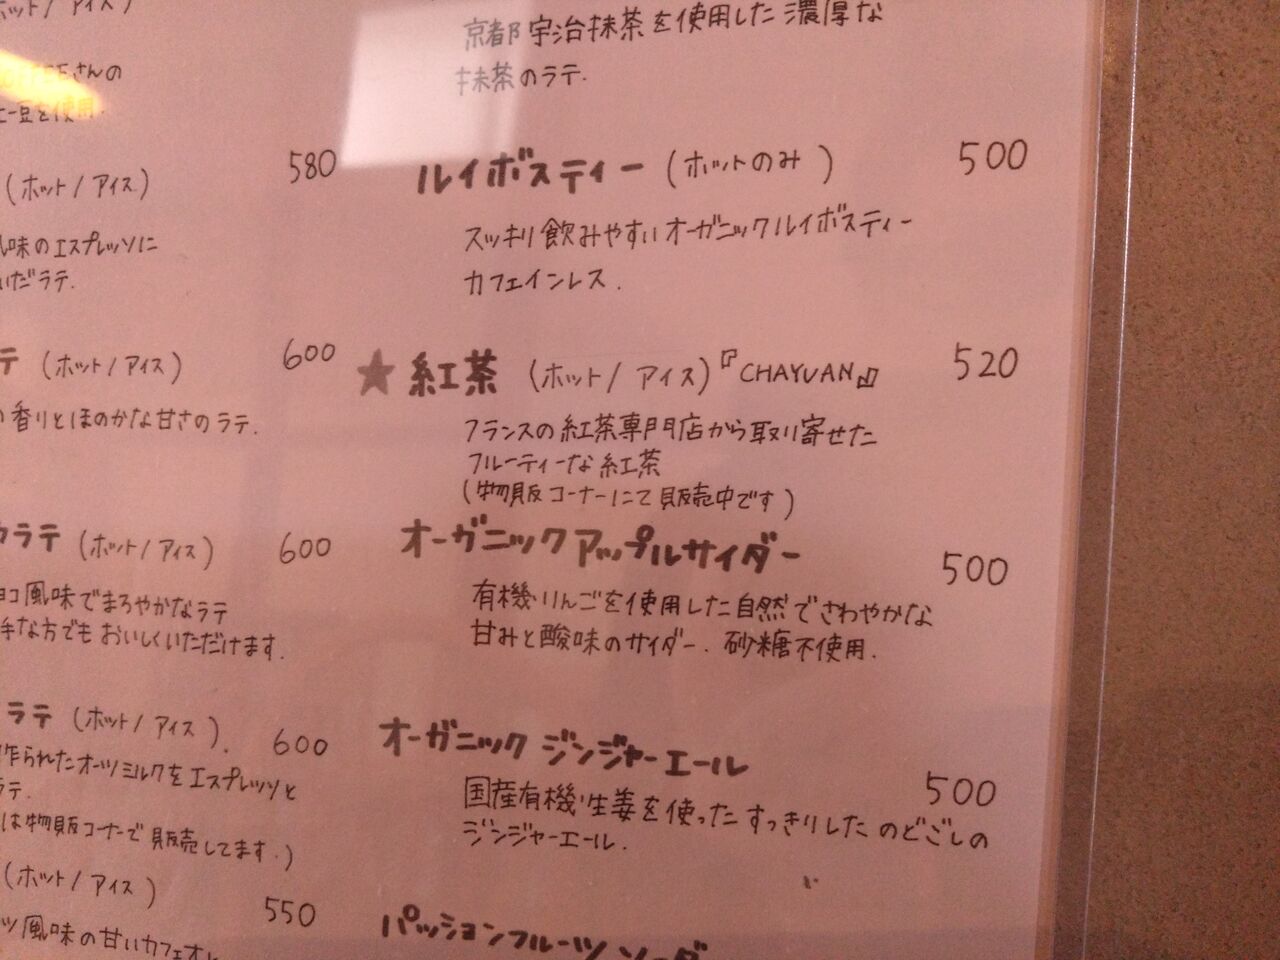 ホット/アイス)
さんの
豆を使用.
(ホット/アイス)
580
風味のエスプレッソに
いだラテ.
テ (ホット/アイス)
600
香りとほのかな甘さのラテ.
ラテ (ホット/アイス)
600
コ風味でまろやかなラテ
手な方でもおいしくいただけます.
ラテ (ホット/アイス).
600
作られたオーツミルクをエスプレッソと
ラテ.
は物販コーナーで販売してます.)
(ホット/アイス)
550
ツ風味の甘いカフェオレ
京都宇治抹茶を使用した濃厚な
抹茶のラテ.
ルイボスティー (ホットのみ)
500
スッキリ飲みやすいオーガニックルイボスティー
カフェインレス.
★紅茶 (ホット/アイス)『CHAYUAN』
520
フランスの紅茶専門店から取り寄せた
フルーティーな紅茶
(物販コーナーにて販売中です)
オーガニックアップルサイダー
500
有機りんごを使用した自然でさわやかな
甘みと酸味のサイダー.砂糖不使用.
オーガニック ジンジャーエール
500
国産有機生姜を使ったすっきりしたのどごしの
ジンジャーエール.
パッションフルーツソーダ